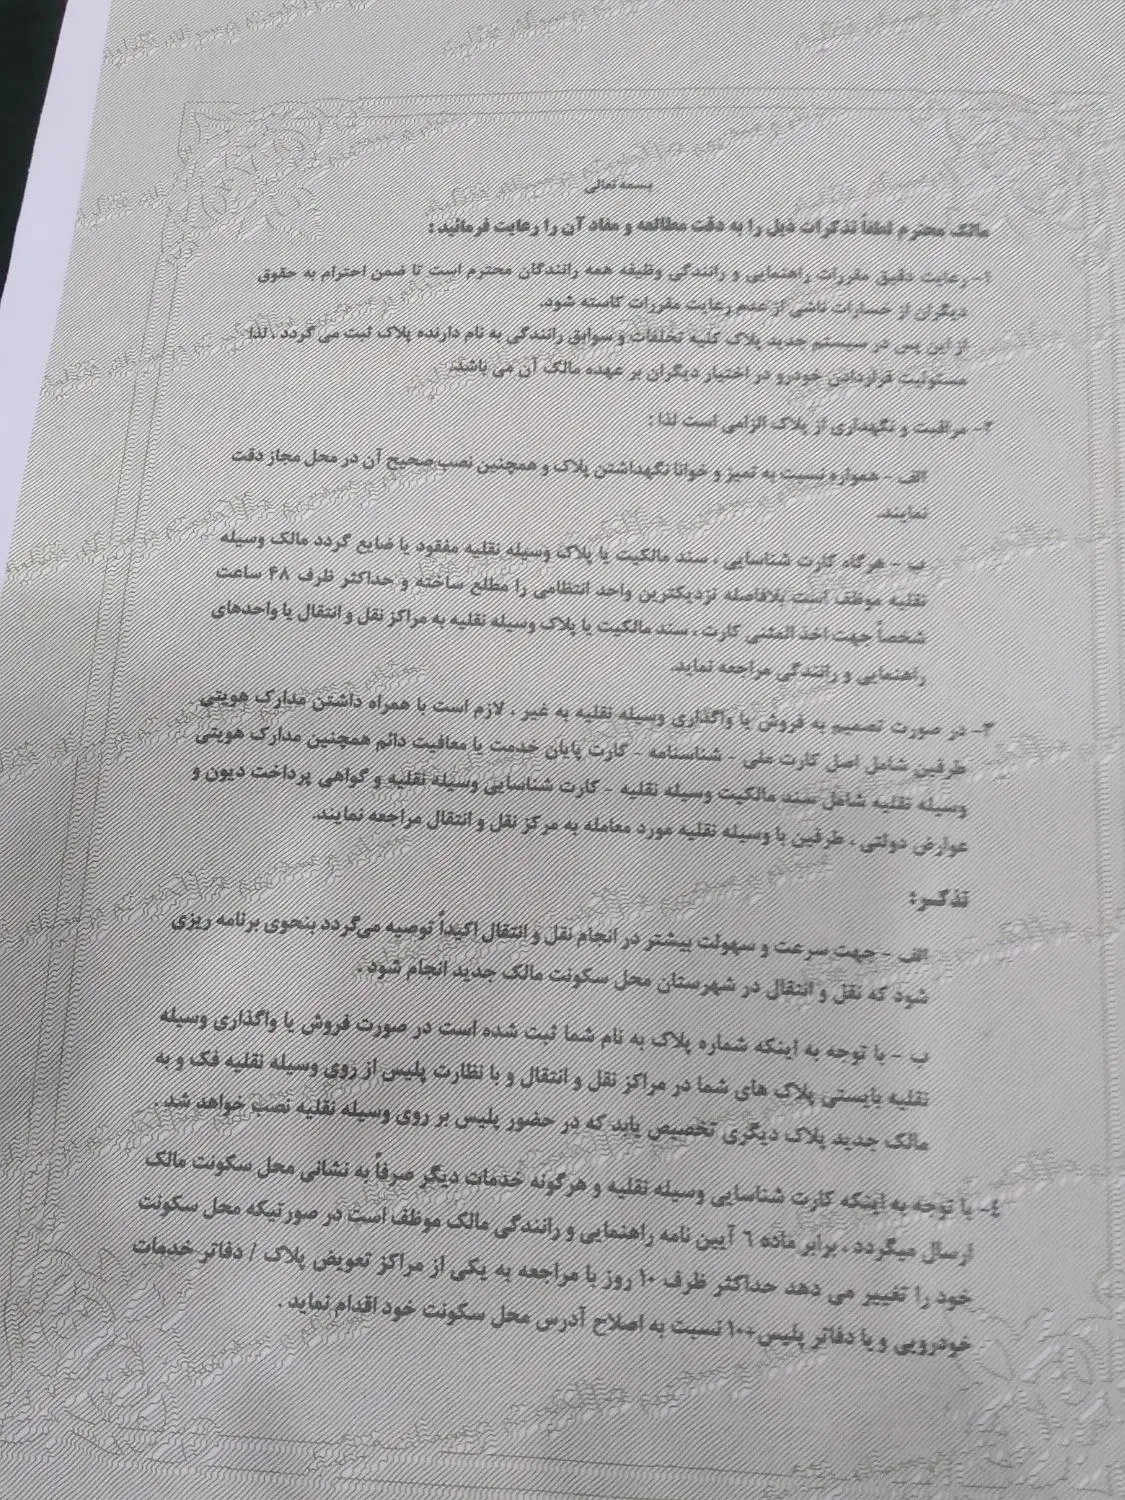 بسمه تعالی
مالک محترم لطفاً تذکرات ذیل را به دقت مطالعه و مفاد آن را رعایت فرمائید :
۱- رعایت دقیق مقررات راهنمایی و رانندگی وظیفه همه رانندگان محترم است تا ضمن احترام به حقوق
دیگران از خسارات ناشی از عدم رعایت مقررات کاسته شود.
از این پس در سیستم جدید پلاک کلیه تخلفات و سوابق رانندگی به نام دارنده پلاک ثبت می گردد ، لذا
مسئولیت قراردادن خودرو در اختیار دیگران بر عهده مالک آن می باشد.
۲- مراقبت و نگهداری از پلاک الزامی است لذا :
الف - همواره نسبت به تمیز و خوانا نگهداشتن پلاک و همچنین نصب صحیح آن در محل مجاز دقت
نمایند.
ب - هرگاه کارت شناسایی ، سند مالکیت یا پلاک وسیله نقلیه مفقود یا ضایع گردد مالک وسیله
نقلیه موظف است بلافاصله نزدیکترین واحد انتظامی را مطلع ساخته و حداکثر ظرف ۴۸ ساعت
شخصاً جهت اخذ المثنی کارت ، سند مالکیت یا پلاک وسیله نقلیه به مراکز نقل و انتقال یا واحدهای
راهنمایی و رانندگی مراجعه نماید.
۳- در صورت تصمیم به فروش یا واگذاری وسیله نقلیه به غیر ، لازم است با همراه داشتن مدارک هویتی
طرفین شامل اصل کارت ملی - شناسنامه - کارت پایان خدمت یا معافیت دائم همچنین مدارک هویتی
وسیله نقلیه شامل سند مالکیت وسیله نقلیه - کارت شناسایی وسیله نقلیه و گواهی پرداخت دیون و
عوارض دولتی ، طرفین با وسیله نقلیه مورد معامله به مرکز نقل و انتقال مراجعه نمایند.
تذکر:
الف - جهت سرعت و سهولت بیشتر در انجام نقل و انتقال اکیداً توصیه می‌گردد بنحوی برنامه ریزی
شود که نقل و انتقال در شهرستان محل سکونت مالک جدید انجام شود .
ب - با توجه به اینکه شماره پلاک به نام شما ثبت شده است در صورت فروش یا واگذاری وسیله
نقلیه بایستی پلاک های شما در مراکز نقل و انتقال و با نظارت پلیس از روی وسیله نقلیه فک و به
مالک جدید پلاک دیگری تخصیص یابد که در حضور پلیس بر روی وسیله نقلیه نصب خواهد شد .
٤- با توجه به اینکه کارت شناسایی وسیله نقلیه و هرگونه خدمات دیگر صرفاً به نشانی محل سکونت مالک
ارسال میگردد ، برابر ماده ٦ آیین نامه راهنمایی و رانندگی مالک موظف است در صورتیکه محل سکونت
خود را تغییر می دهد حداکثر ظرف ۱۰ روز با مراجعه به یکی از مراکز تعویض پلاک / دفاتر خدمات
خودرویی و یا دفاتر پلیس+۱۰ نسبت به اصلاح آدرس محل سکونت خود اقدام نماید .